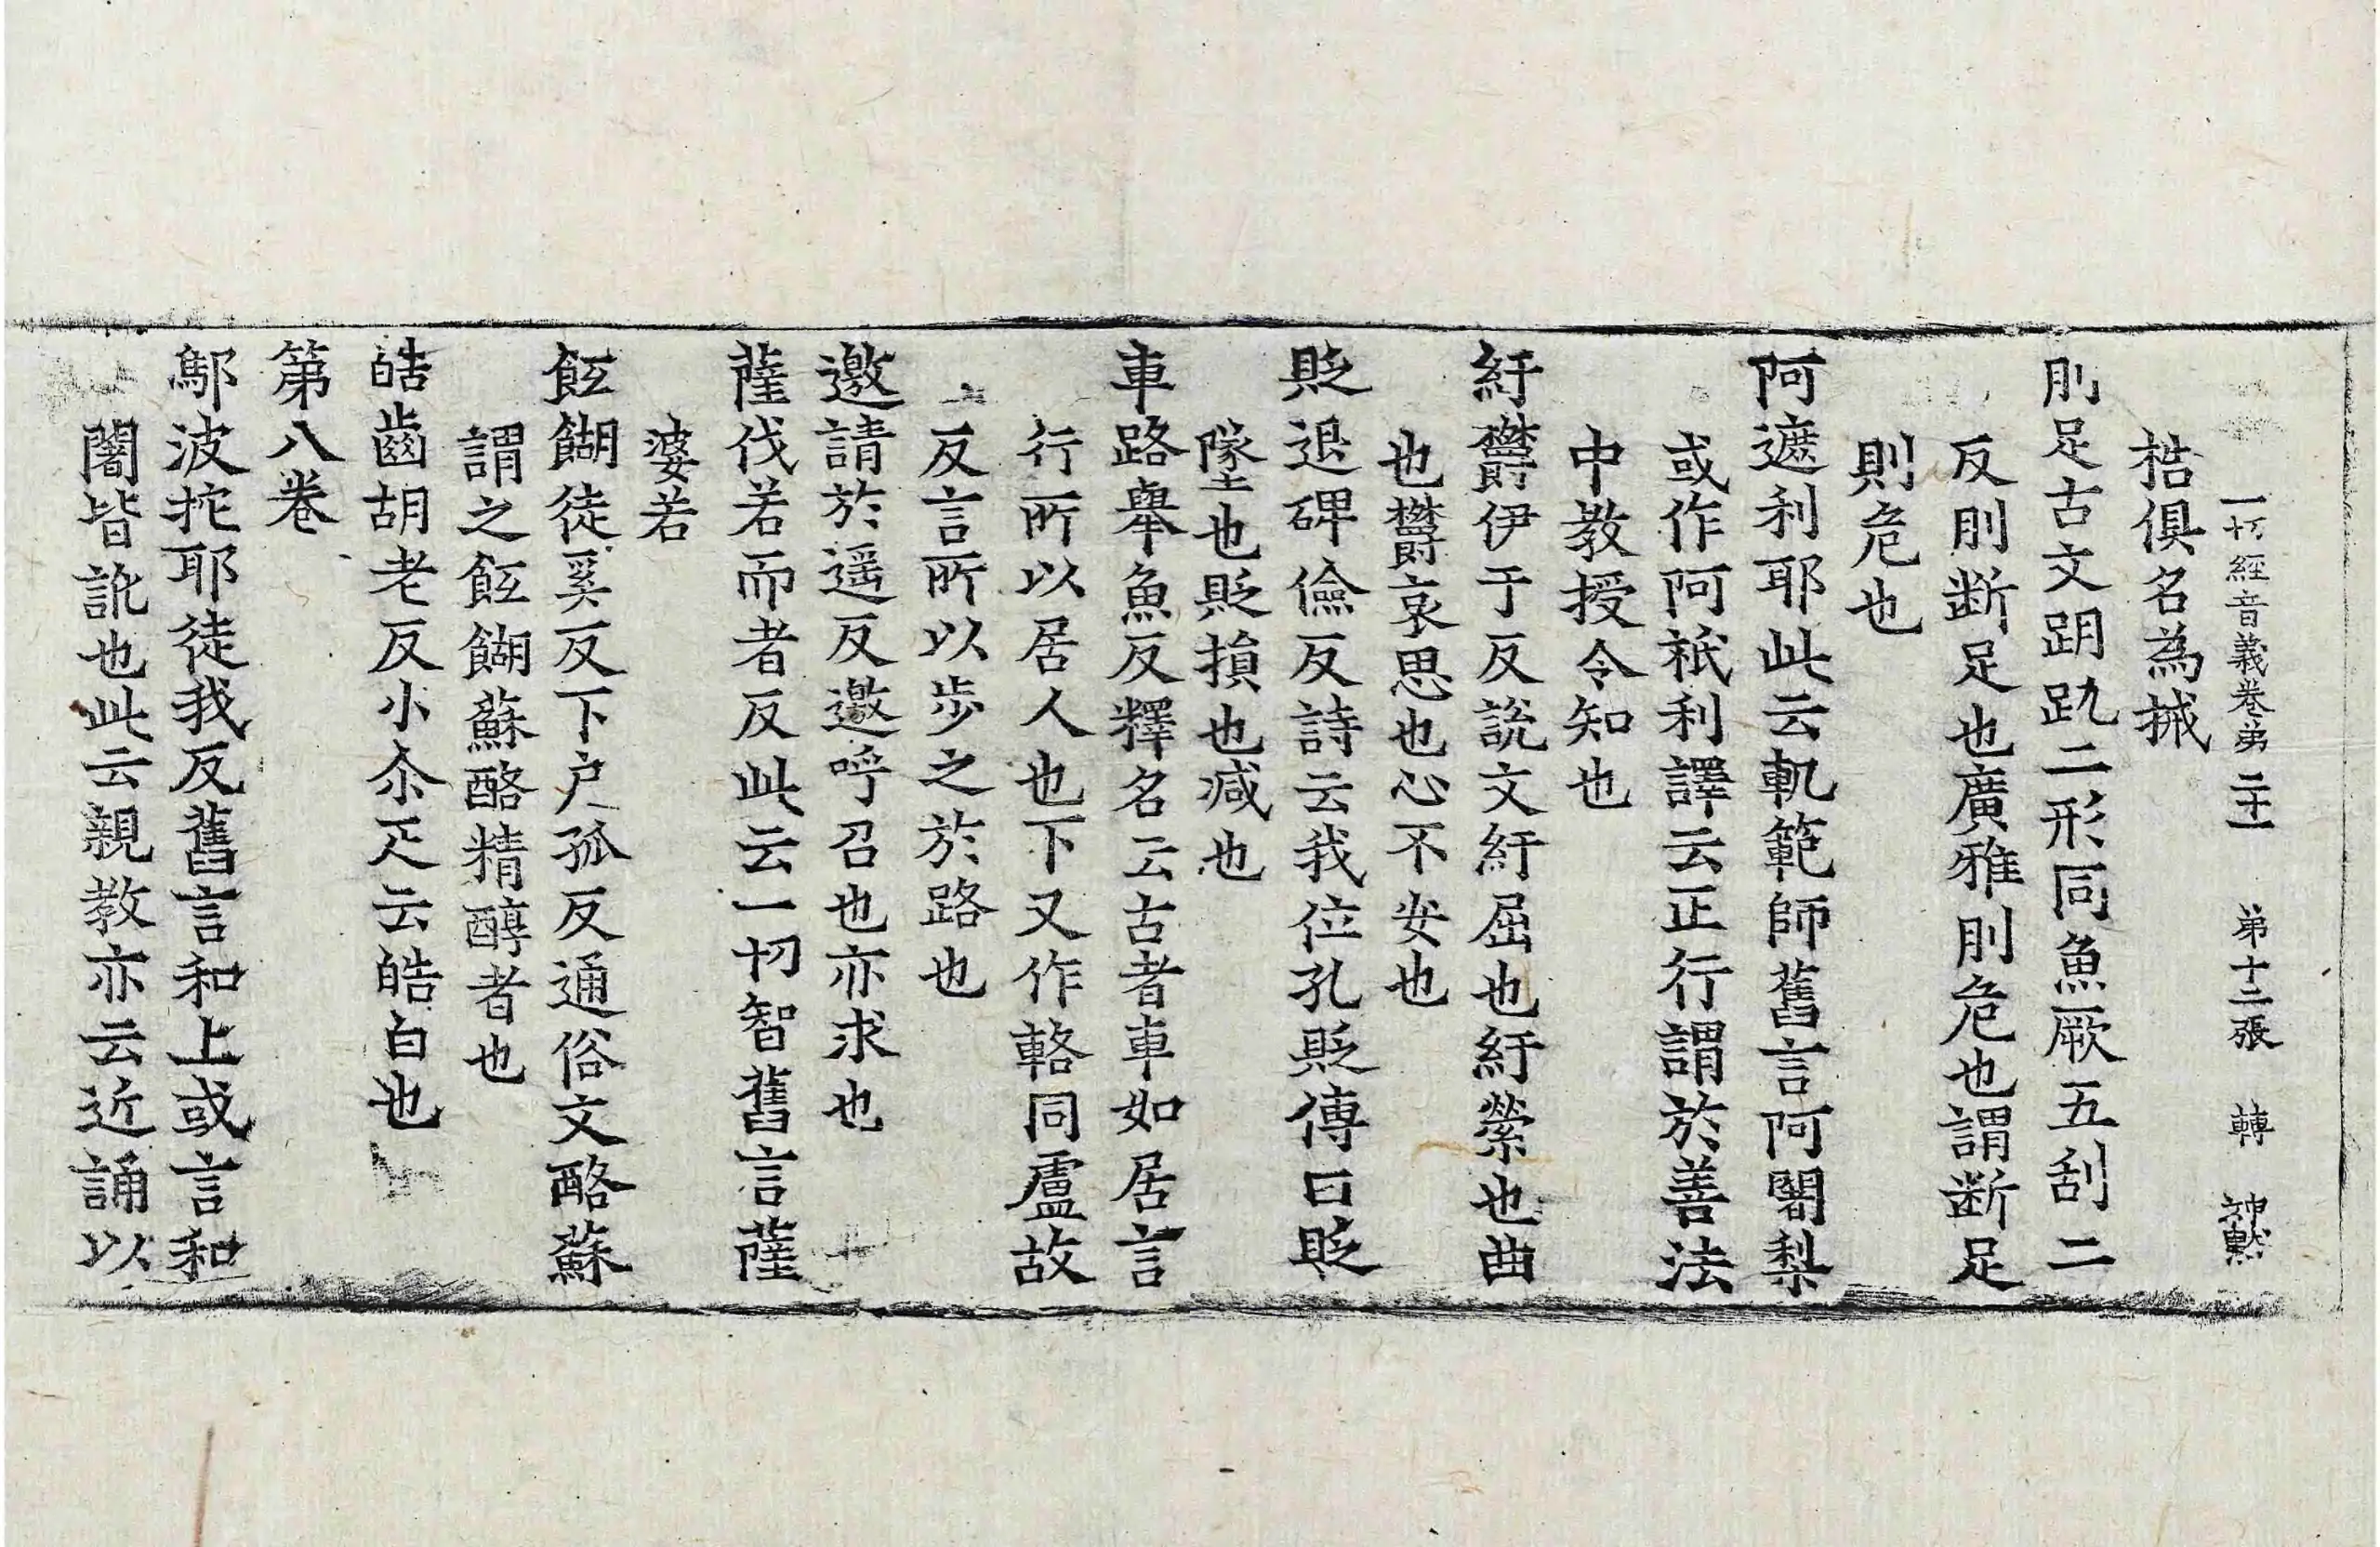 一切經音義卷弟二十一 弟十二張 轉 神㸃
梏俱名為械
刖足古文跀䟢二形同魚厥五刮二
反刖断足也廣雅刖危也謂断足
則危也
阿遮利耶此云軌範師舊言阿闍梨
或作阿祇利譯云正行謂於善法
中教授令知也
紆欝伊于反說文紆屈也紆縈也曲
也欝哀思也心不安也
貶退碑儉反詩云我位孔貶傳曰貶
墜也貶損也减也
車路舉魚反釋名云古者車如居言
行所以居人也下又作輅同盧故
反言所以步之於路也
邀請於遥反邀呼召也亦求也
薩伐若而者反此云一切智舊言薩
婆若
䬫餬徒奚反下户孤反通俗文酪蘇
謂之䬫餬蘇酪精醇者也
皓齒胡老反小尒疋云皓白也
第八卷
鄔波扡耶徒我反舊言和上或言和
闍皆訛也此云親教亦云近誦以